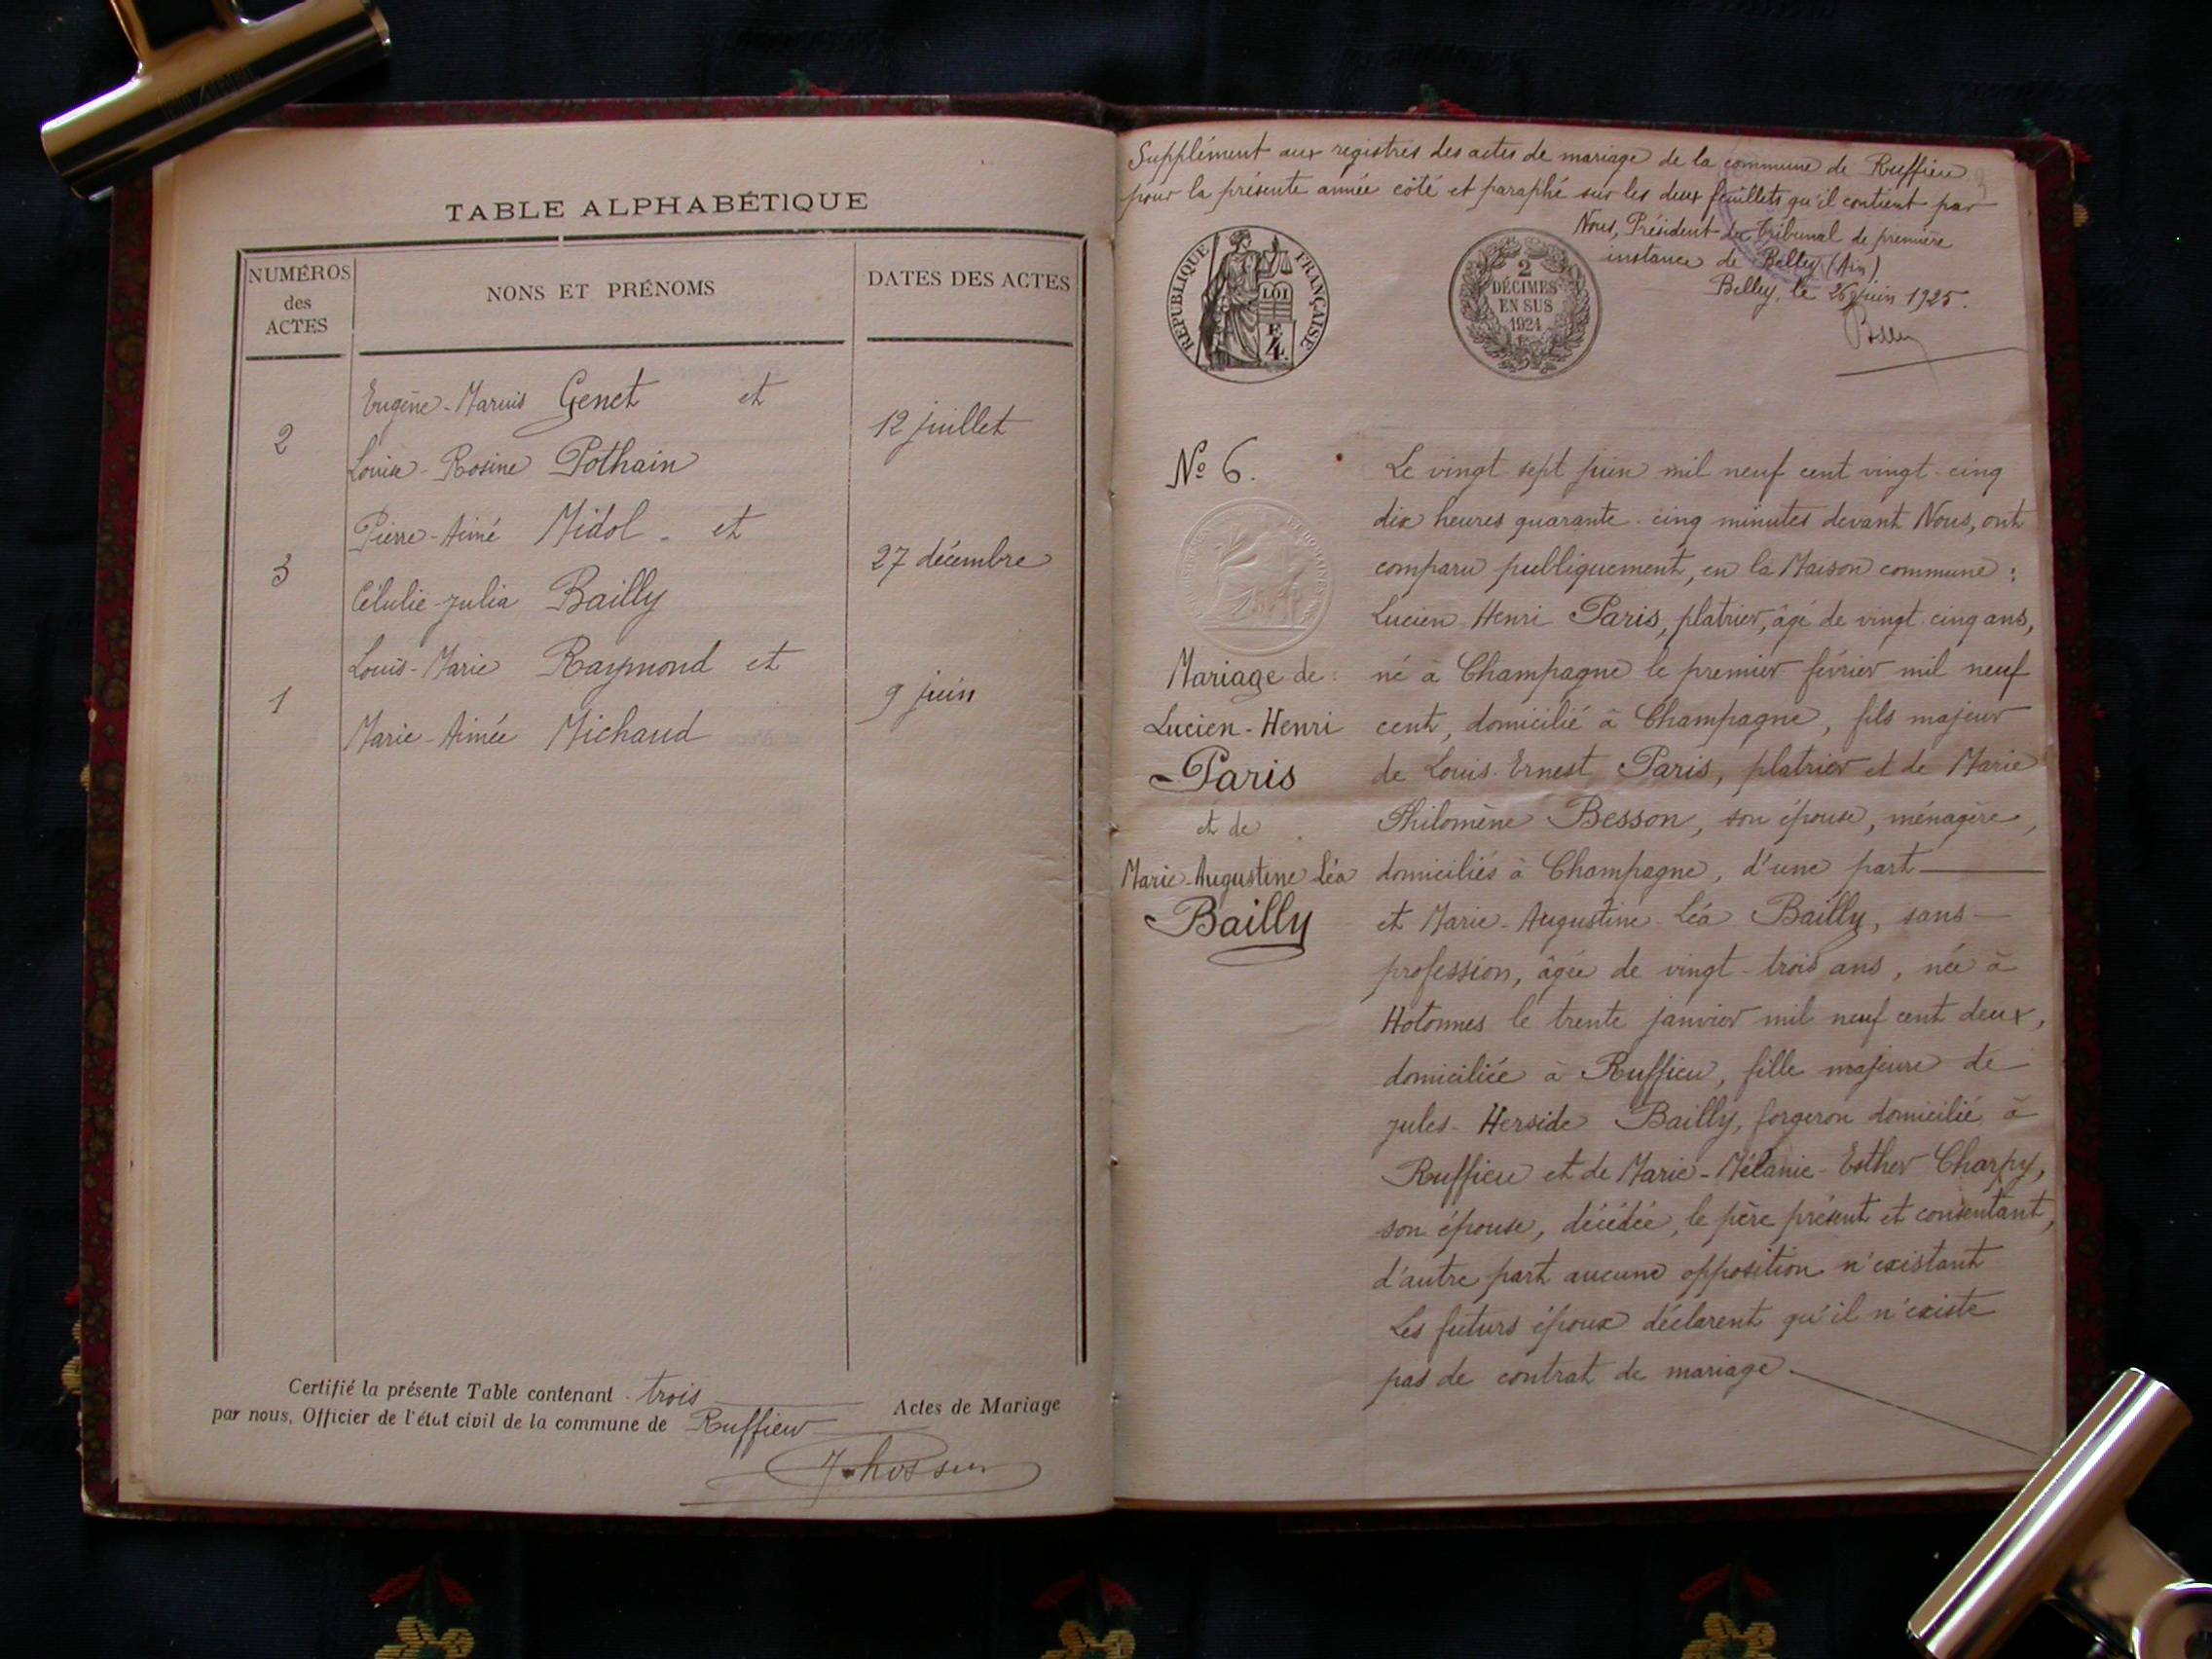 TABLE ALPHABÉTIQUE
NUMÉROS
des
ACTES
NONS ET PRÉNOMS
DATES DES ACTES
Eugène-Marius Genet et
2
12 juillet
Louise-Rosine Pothain
Pierre-Aimé Midol - et
3
27 décembre
Célulie-Julia Bailly
Louis-Marie Raymond et
1
9 juin
Marie-Aimée Michaud
Certifié la présente Table contenant trois Actes de Mariage
par nous, Officier de l'état civil de la commune de Ruffieu
Supplément aux registres des actes de mariage de la commune de Ruffieu
pour la présente année côté et paraphé sur les deux feuillets qu'il contient par
Nous, Président du Tribunal de première
instance de Belley (Ain)
Belley, le 26 juin 1925.
RÉPUBLIQUE FRANÇAISE
LOI
E
4
2
DÉCIMES
EN SUS
1924
No 6.
Mariage de :
Lucien-Henri
Paris
et de
Marie-Augustine Léa
Bailly
Le vingt sept juin mil neuf cent vingt-cinq
dix heures quarante-cinq minutes devant Nous, ont
comparu publiquement, en la Maison commune :
Lucien Henri Paris, platrier, âgé de vingt-cinq ans,
né à Champagne le premier février mil neuf
cent, domicilié à Champagne, fils majeur
de Louis-Ernest Paris, platrier et de Marie
Philomène Besson, son épouse, ménagère,
domiciliés à Champagne, d'une part
et Marie-Augustine-Léa Bailly, sans
profession, âgée de vingt-trois ans, née à
Hotonnes le trente janvier mil neuf cent deux,
domiciliée à Ruffieu, fille majeure de
Jules-Herside Bailly, forgeron domicilié à
Ruffieu et de Marie-Mélanie-Esther Charpy,
son épouse, décédée, le père présent et consentant,
d'autre part aucune opposition n'existant
Les futurs époux déclarent qu'il n'existe
pas de contrat de mariage.